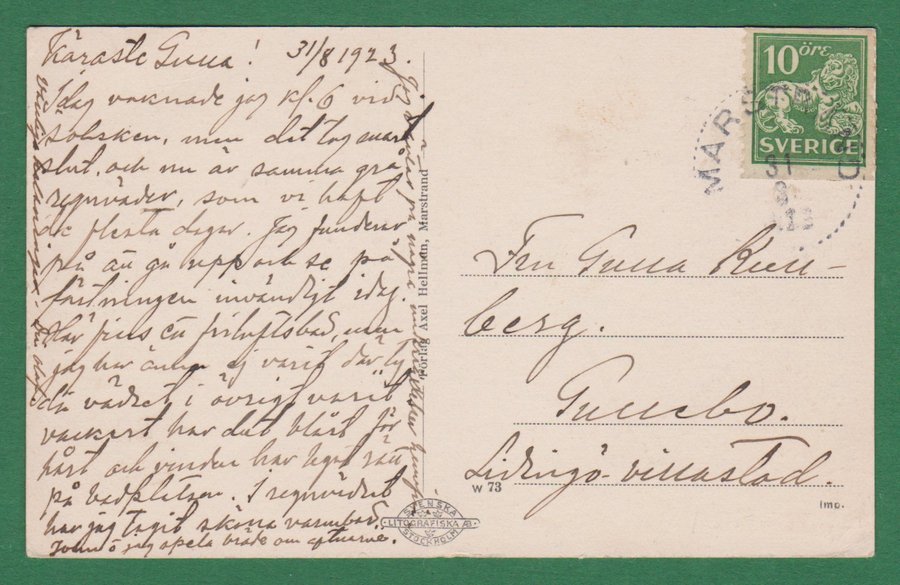 Käraste Gulla! 31/8 1923.
Idag vaknade jag kl. 6 vid
solsken, men det tog snart
slut, och nu är samma grå
regnväder, som vi haft
de flesta dagar. Jag funderar
på att gå upp och se på
fästningen invändigt idag.
Här finns ett friluftsbad, men
jag har ännu ej varit där ty
då vädret i övrigt varit
vackert har det blåst för
hårt och vinden har legat rätt
på badplatsen. I regnvädret
har jag tagit sköna varmbad.
John o jag spela bräde om aftnarne.
Förlag Axel Hellman, Marstrand
10 ÖRE
SVERIGE
MARSTRAND
31
8
Fru Gulla Kull-
berg.
Gullebo.
Lidingö-villastad.
W 73
Imp.
SVENSKA
LITOGRAFISKA AB.
STOCKHOLM